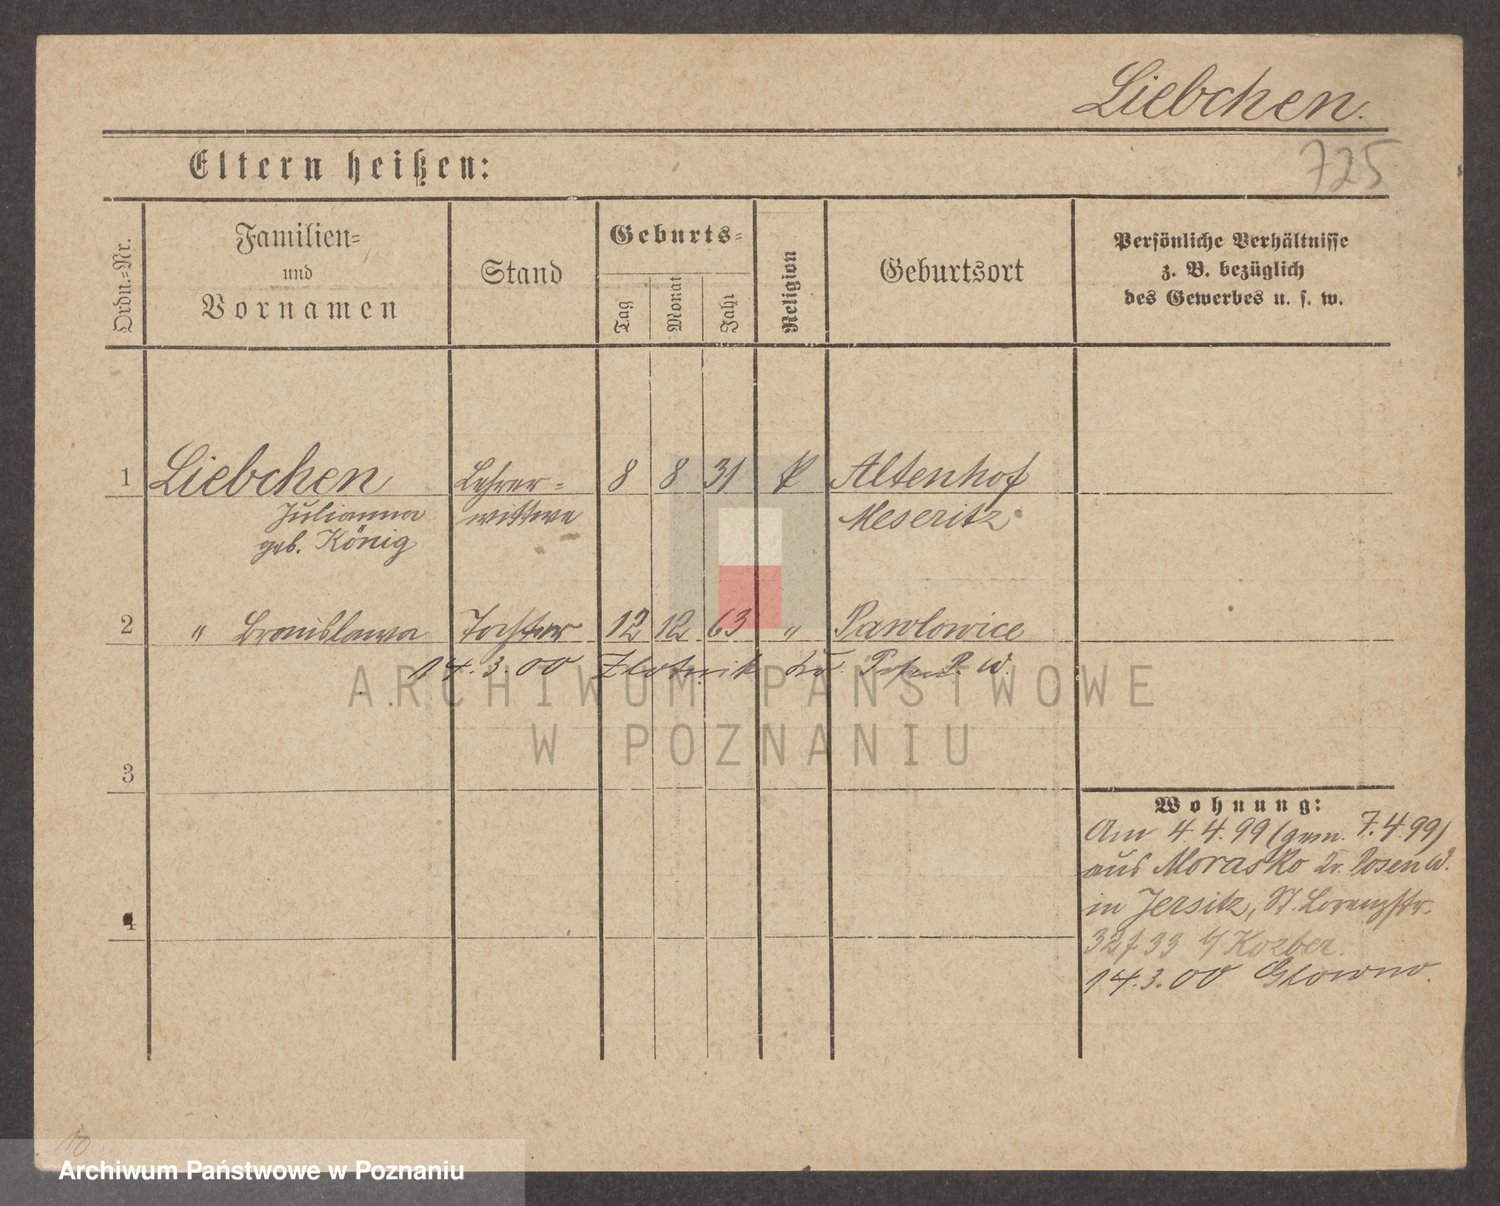 Liebchen.
725
Eltern heißen:
Ordn.-Nr.
Familien-
und
Vornamen
Stand
Geburts-
Tag
Monat
Jahr
Religion
Geburtsort
Persönliche Verhältnisse
z. B. bezüglich
des Gewerbes u. s. w.
1 Liebchen Lehrer- 8 8 31 Altenhof
Julianna wittwe Meseritz
geb. König
2 " Bronislawa Tochter 12 12 63 " Pawlowice
14.3.00 Zlotnik Kr. Posen W.
ARCHIWUM PAŃSTWOWE
W POZNANIU
3
Wohnung:
Am 4.4.99 (gem. 7.4 99)
aus Morasko Kr. Posen W.
in Jersitz, St. Lorenzstr.
4
32 33 Kozber.
14.3.00 Glowno.
10
Archiwum Państwowe w Poznaniu